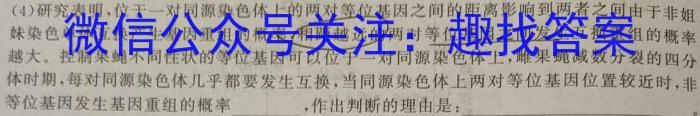 (4)研究表明,位于一对同源染色体上的两对等位基因之间的距离影响到两者之间由于非姐
妹染色 基因重组的概率 相距越远的两对等位基因之间 发生互换 组的概率
微信公众号关注:趣找答案
越大。控制果蝇不同性状的等位基因可以位于一对同源染色体上,雌果蝇减数分裂的四分
体时期,每对同源染色体几乎都要发生互换,当同源染色体上两对等位基因位置较近时,非
等位基因发生基因重组的概率 ,作出判断的理由是: